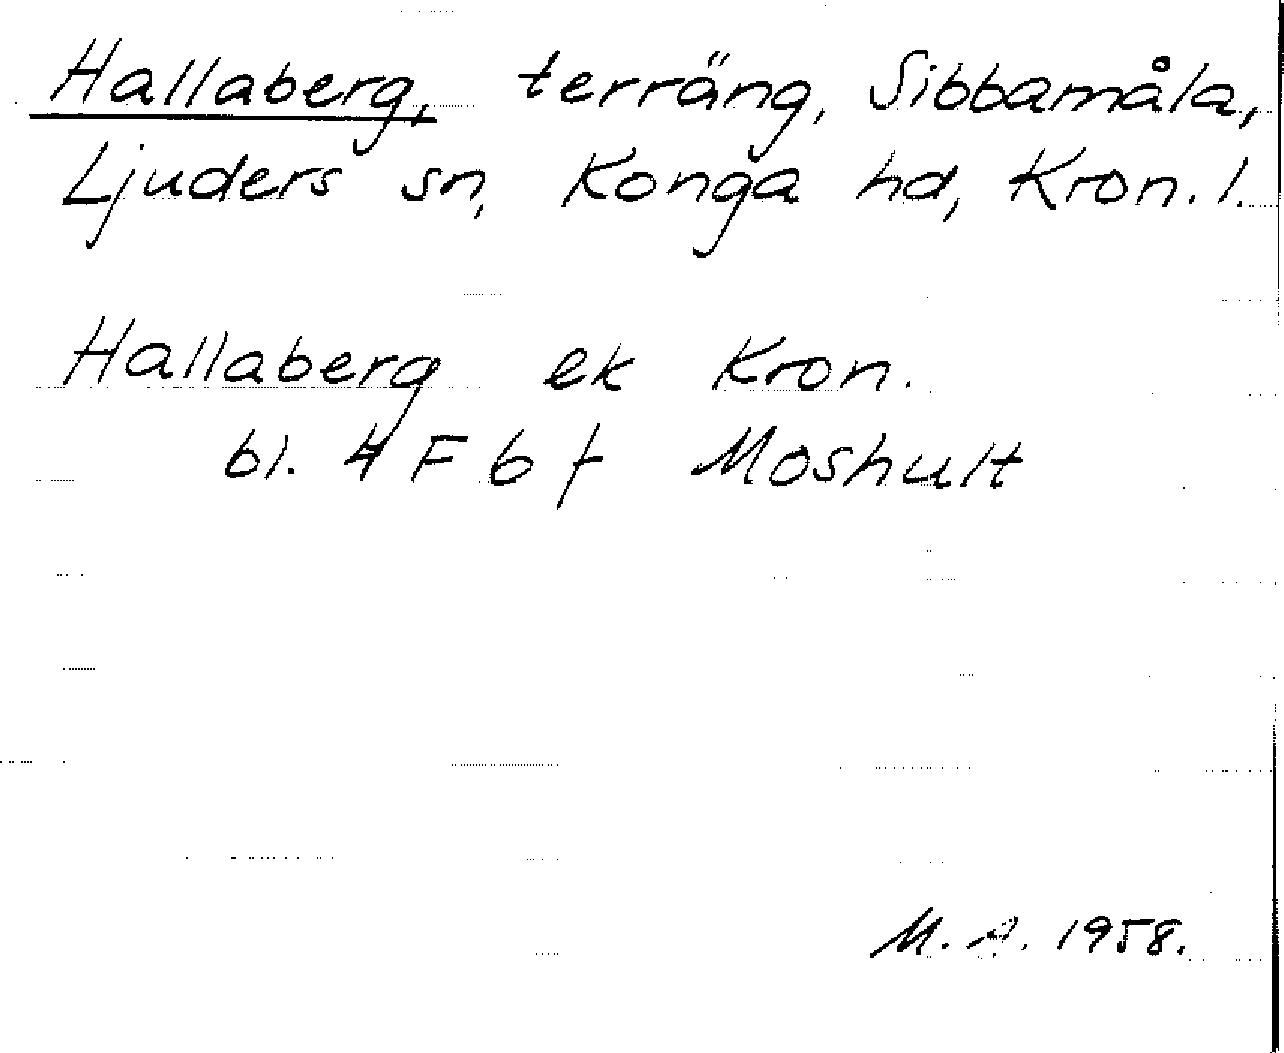 Hallaberg, terräng, Sibbamåla,
Ljuders sn, Konga hd, Kron. l.
Hallaberg ek Kron.
bl. 4 F 6 f Moshult
M. A. 1958.